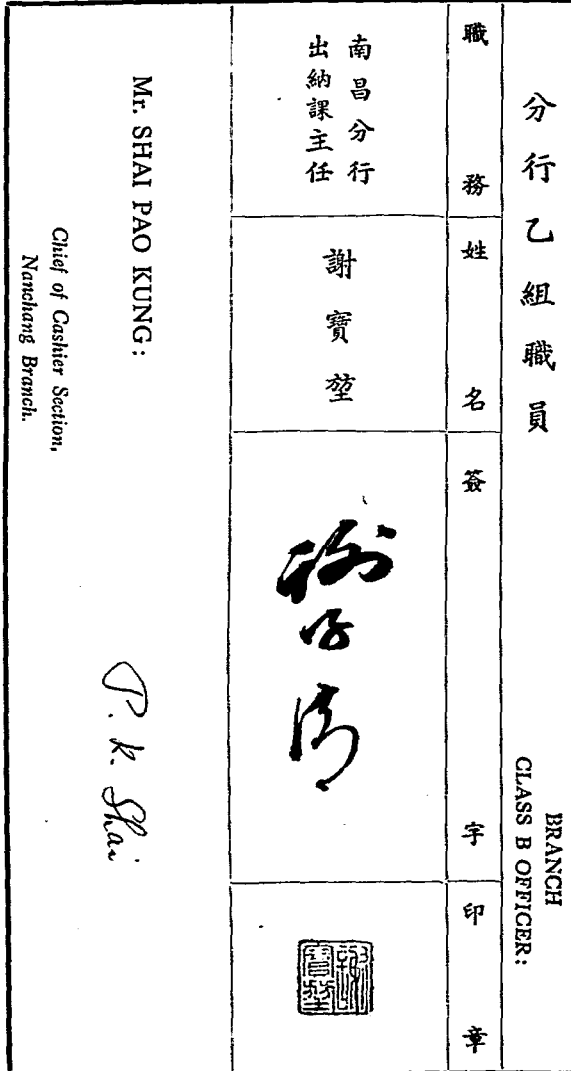 分行乙組職員
BRANCH
CLASS B OFFICER:
職務
姓名
簽字
印章
南昌分行
出納課主任
謝寶堃
謝寶堃
Mr. SHAI PAO KUNG:
P. K. Shai
Chief of Cashier Section,
Nanchang Branch.